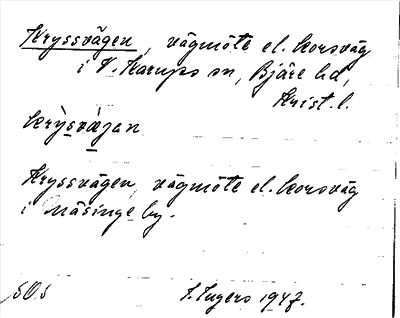 Kryssvägen, vägmöte el. korsväg
i V. Karups sn, Bjäre hd,
Krist. l.
krỳsvæ̀jan
Kryssvägen, vägmöte el. korsväg
i Mäsinge by.
SOs
I. Ingers 1947.